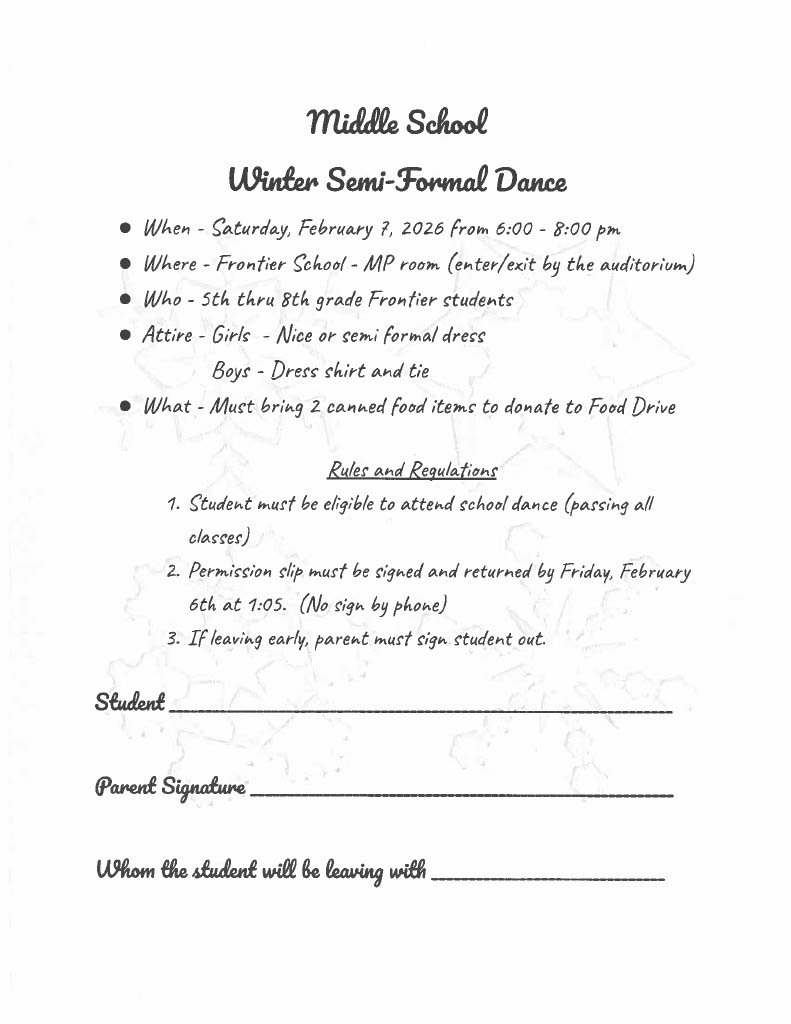 Middle School
Winter Semi-Formal Dance
● When - Saturday, February 7, 2026 from 6:00 - 8:00 pm
● Where - Frontier School - MP room (enter/exit by the auditorium)
● Who - 5th thru 8th grade Frontier students
● Attire - Girls - Nice or semi formal dress
Boys - Dress shirt and tie
● What - Must bring 2 canned food items to donate to Food Drive
Rules and Regulations
1. Student must be eligible to attend school dance (passing all
classes)
2. Permission slip must be signed and returned by Friday, February
6th at 1:05. (No sign by phone)
3. If leaving early, parent must sign student out.
Student ____________________
Parent Signature ____________________
Whom the student will be leaving with ____________________